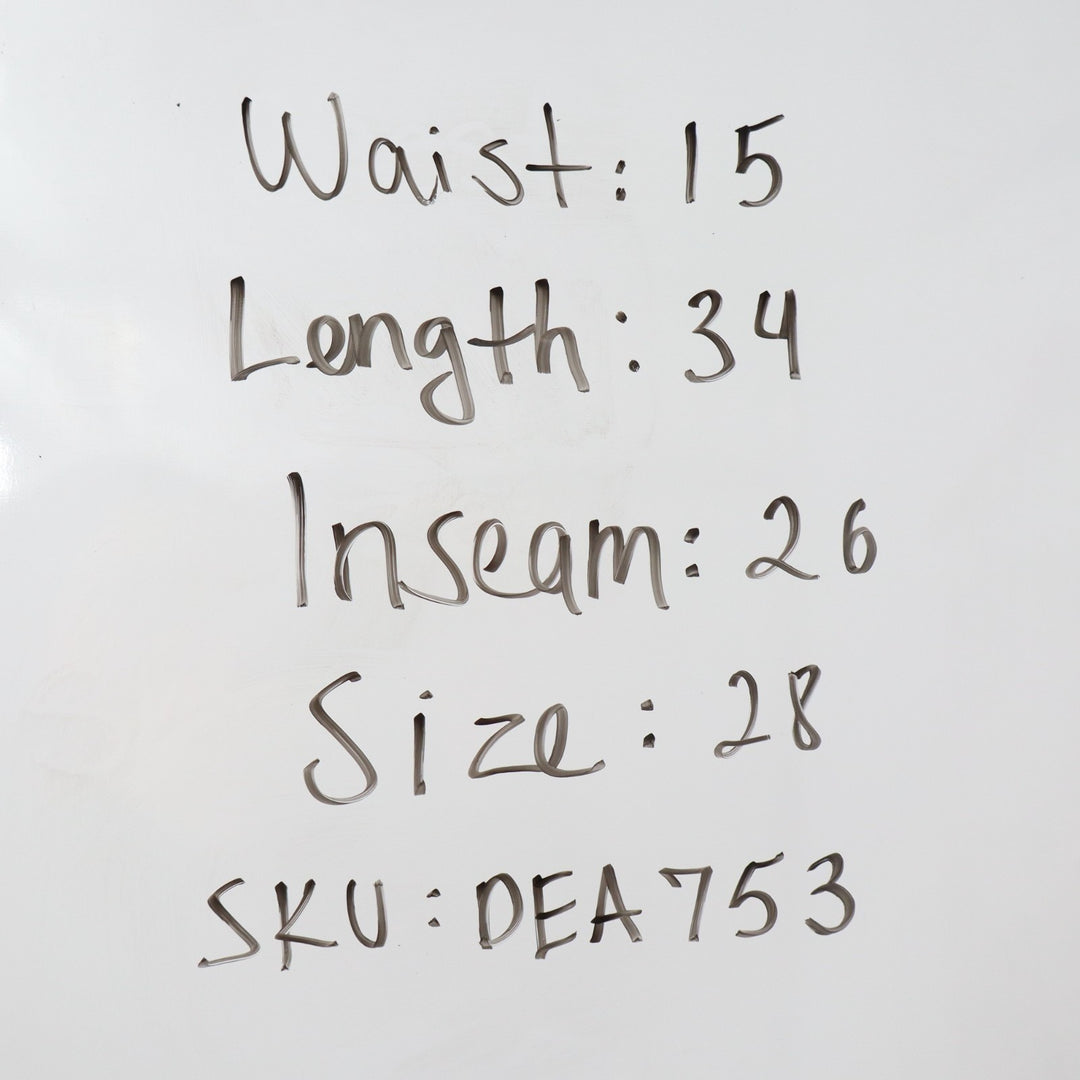 Waist: 15
Length: 34
Inseam: 26
Size: 28
SKU: DEA753